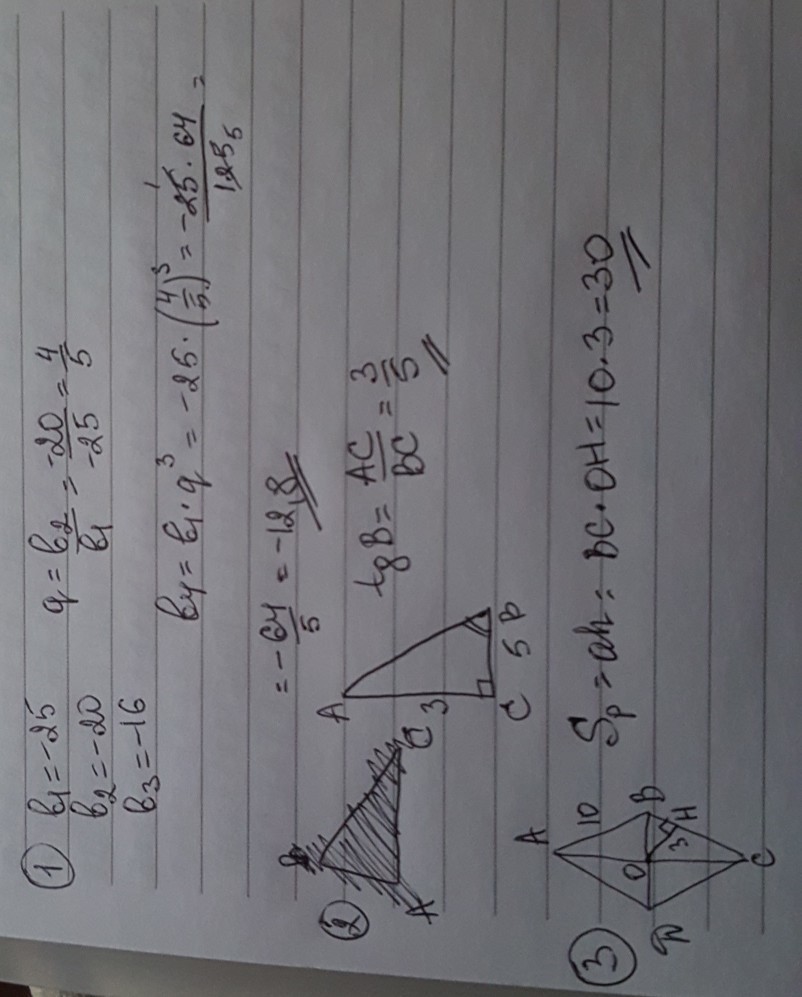 ① b₁=-25 q = b₂/b₁ = -20/-25 = 4/5
b₂=-20
b₃=-16
b₄=b₁·q³ = -25·(4/5)³ = -25·64/125 =
1
5
= -64/5 = -12,8
② B
A
C
A
3
C 5 B
tg B = AC/BC = 3/5
③ A
10
B
O
3
H
C
Sₚ = ah = BC·OH=10·3=30